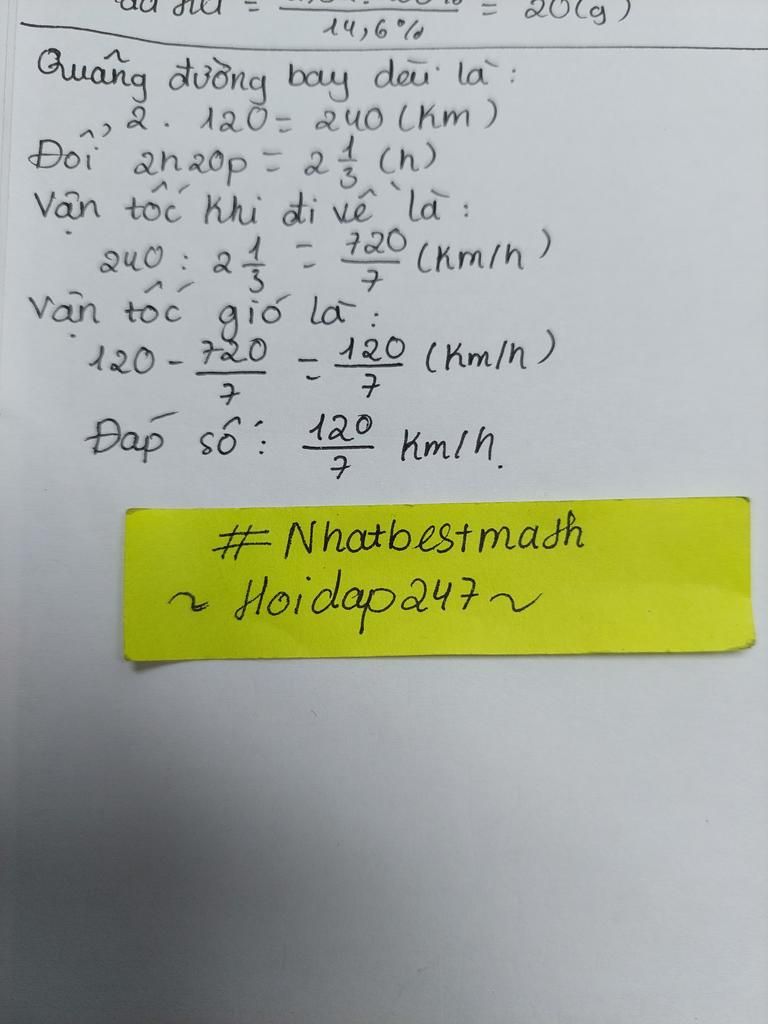 = 20(g)
14,6%
Quãng đường bay dài là:
2 . 120 = 240 (Km)
Đổi 2h20p = 2 1/3 (h)
Vận tốc khi đi về là:
240 : 2 1/3 = 720/7 (Km/h)
Vận tốc gió là:
120 - 720/7 = 120/7 (Km/h)
Đáp số: 120/7 Km/h.
#Nhatbestmath
~ Hoidap247 ~